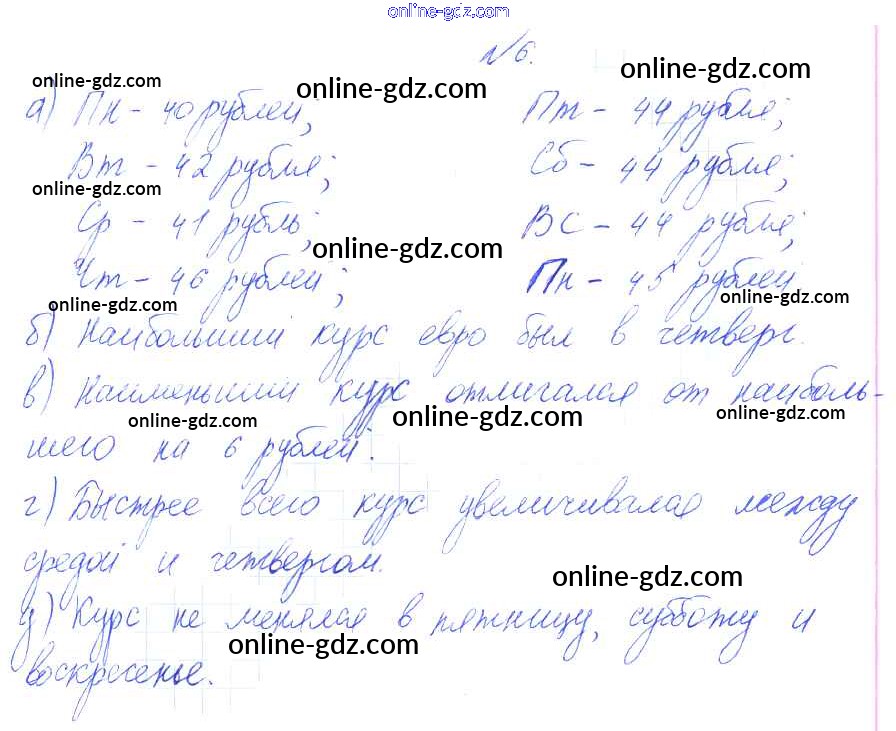 online-gdz.com
№6.
online-gdz.com
online-gdz.com
online-gdz.com
а) Пн - 40 рублей;
Пт - 44 рубля;
Вт - 42 рубля;
Сб - 44 рубля;
online-gdz.com
Ср - 41 рубль;
ВС - 44 рубля;
online-gdz.com
Чт - 46 рублей;
Пн - 45 рублей
online-gdz.com
online-gdz.com
б) Наибольший курс евро был в четверг.
в) Наименьший курс отличался от наиболь-
online-gdz.com
online-gdz.com
online-gdz.com
шего на 6 рублей.
г) Быстрее всего курс увеличивался между
средой и четвергом.
online-gdz.com
д) Курс не менялся в пятницу, субботу и
online-gdz.com
воскресенье.